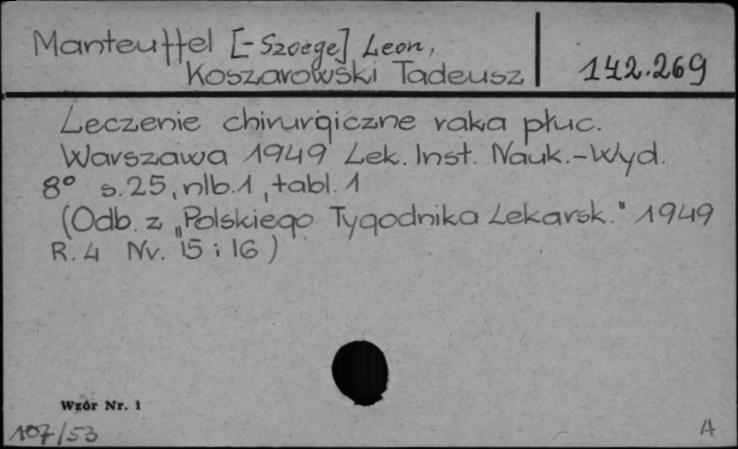 Manteuffel [-Szoege] Leon,
Koszarowski Tadeusz
142.269
Leczenie chirurgiczne raka płuc.
Warszawa 1949 Lek. Inst. Nauk.-Wyd.
8° s. 25, nlb. 1, tabl. 1
(Odb. z „Polskiego Tygodnika Lekarsk." 1949
R. 4 Nr. 15 i 16)
Wzór Nr. 1
107/53
A